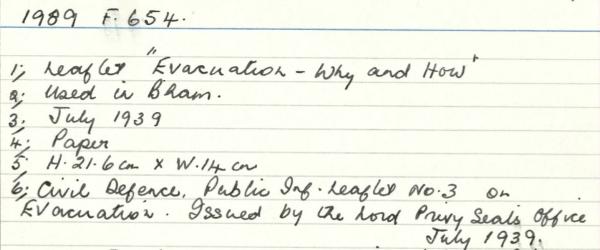 1989 F.654.
1; Leaflet "Evacuation - Why and How"
2; Used in Bham.
3; July 1939
4; Paper
5; H.21.6cm x W.14 cm
6; Civil Defence, Public Inf. Leaflet No.3 on
Evacuation. Issued by the Lord Privy Seals Office
July 1939.